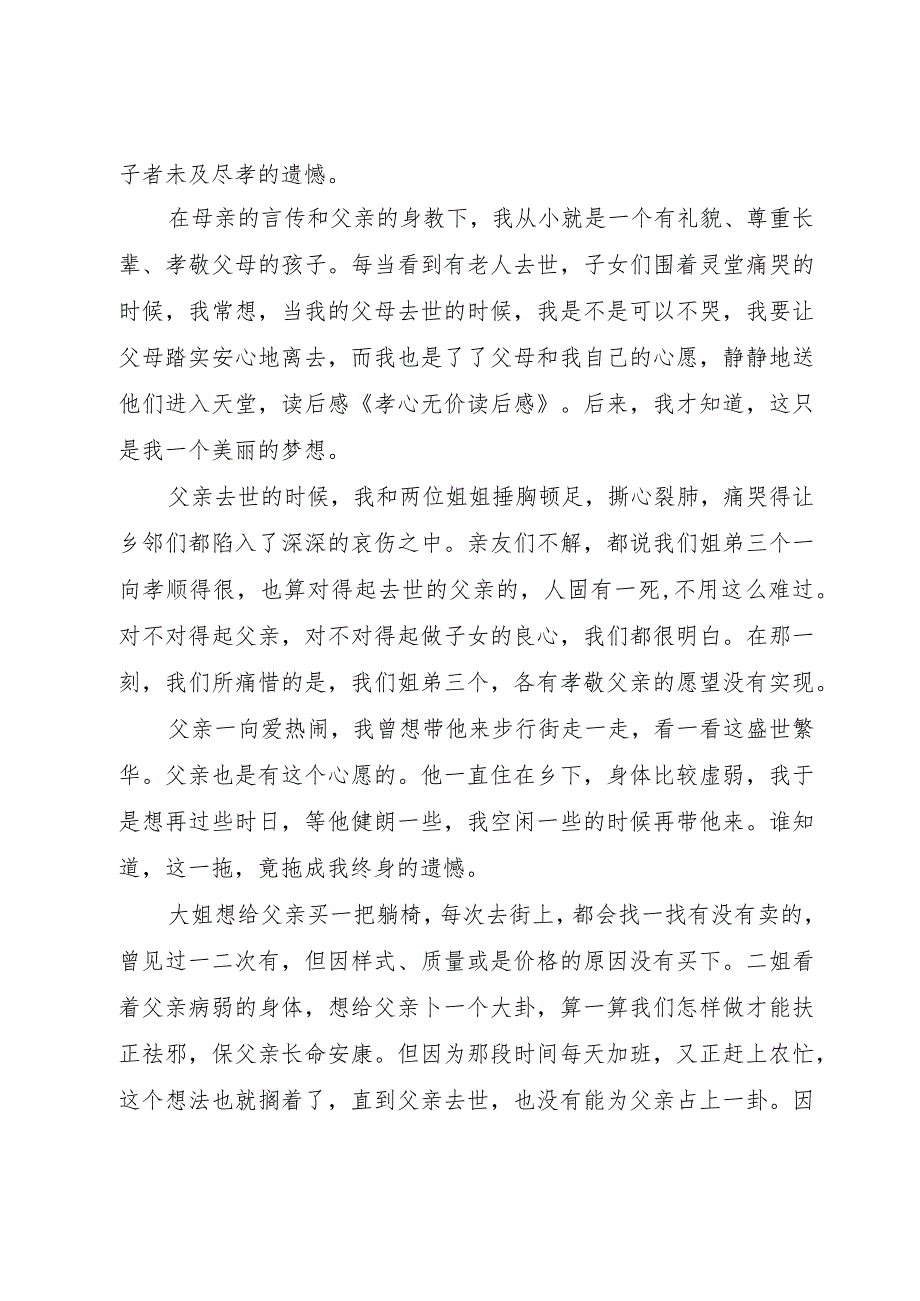 子者未及尽孝的遗憾。
在母亲的言传和父亲的身教下，我从小就是一个有礼貌、尊重长
辈、孝敬父母的孩子。每当看到有老人去世，子女们围着灵堂痛哭的
时候，我常想，当我的父母去世的时候，我是不是可以不哭，我要让
父母踏实安心地离去，而我也是了了父母和我自己的心愿，静静地送
他们进入天堂，读后感《孝心无价读后感》。后来，我才知道，这只
是我一个美丽的梦想。
父亲去世的时候，我和两位姐姐捶胸顿足，撕心裂肺，痛哭得让
乡邻们都陷入了深深的哀伤之中。亲友们不解，都说我们姐弟三个一
向孝顺得很，也算对得起去世的父亲的，人固有一死,不用这么难过。
对不对得起父亲，对不对得起做子女的良心，我们都很明白。在那一
刻，我们所痛惜的是，我们姐弟三个，各有孝敬父亲的愿望没有实现。
父亲一向爱热闹，我曾想带他来步行街走一走，看一看这盛世繁
华。父亲也是有这个心愿的。他一直住在乡下，身体比较虚弱，我于
是想再过些时日，等他健朗一些，我空闲一些的时候再带他来。谁知
道，这一拖，竟拖成我终身的遗憾。
大姐想给父亲买一把躺椅，每次去街上，都会找一找有没有卖的，
曾见过一二次有，但因样式、质量或是价格的原因没有买下。二姐看
着父亲病弱的身体，想给父亲卜一个大卦，算一算我们怎样做才能扶
正祛邪，保父亲长命安康。但因为那段时间每天加班，又正赶上农忙，
这个想法也就搁着了，直到父亲去世，也没有能为父亲占上一卦。因